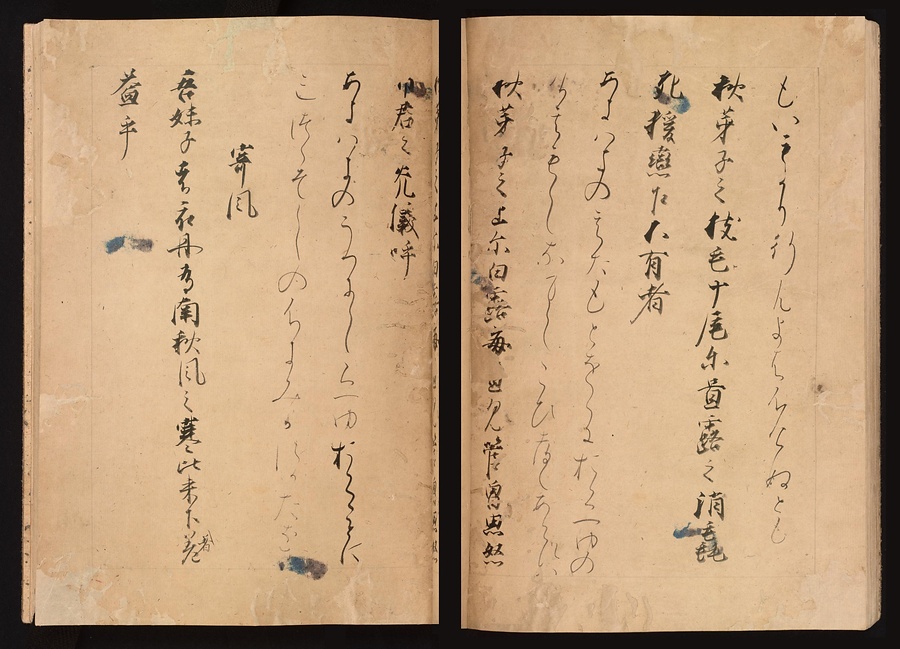 もいもかり行んよはふけぬとも
秋芽子之枝毛十尾尓置露之消毳
死猨戀乍不有者
あきはきのえたもとをゝにおくつゆの
けかもしなましこひつゝあらすは
秋芽子之上尓白露毎置見管曽思怒
君之光儀呼
あきはきのうへにしらつゆおくことに
みつゝそしのふきみかすかたを
寄風
吾妹子者衣丹有南秋風之寒比来下著
益乎